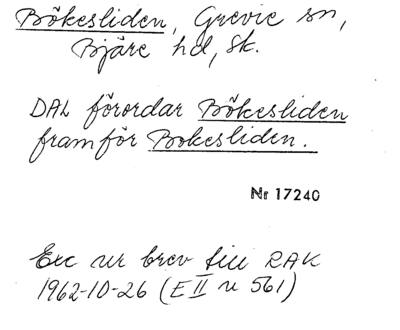 Bökesliden, Grevie sn,
Bjäre hd, Sk.
DAL förordar Bökesliden
framför Bokesliden.
Nr 17240
Exc ur brev till RAK
1962-10-26 (E II u 561)